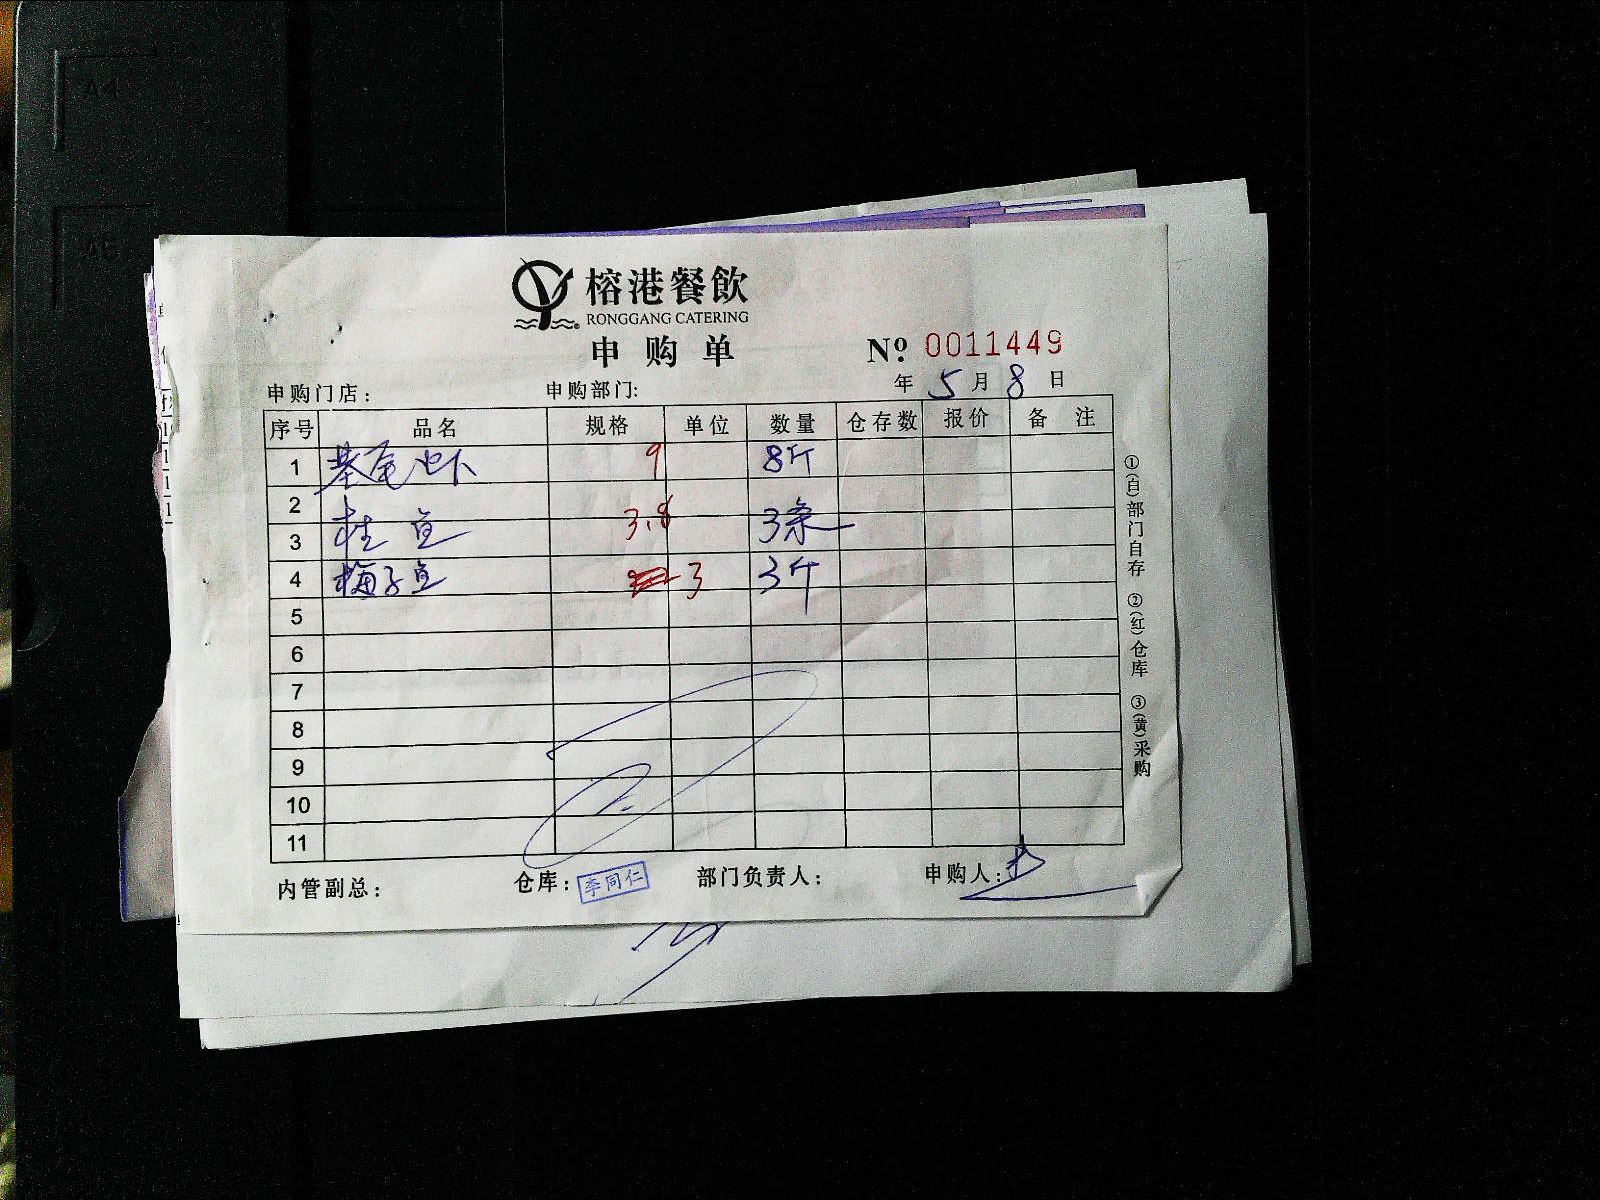 A4
A5
榕港餐飲
RONGGANG CATERING
申购单
№ 0011449
申购门店： 申购部门: 年 5 月 8 日
序号 品名 规格 单位 数量 仓存数 报价 备注
1 基尾虾 9 8斤
2
3 桂鱼 3.8 3条
4 梅子鱼 3 3斤
5
6
7
8
9
10
11
内管副总： 仓库：李同仁 部门负责人： 申购人：
①(白)部门自存 ②(红)仓库 ③(黄)采购